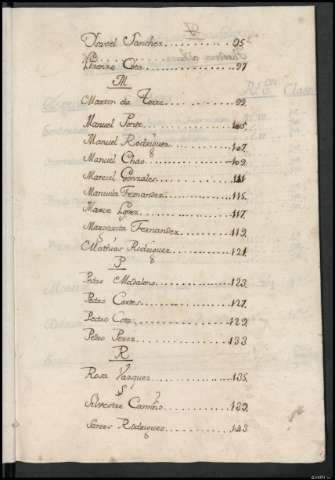 Sanchez 95
Cota 97
M
Martin de 99
Manuel Perez 105
Manuel Rodriguez 107
Manuel Chao 109
Marcial Gonzales 111
Manuela Fernandez 115
Marco Lopez 117
Margarita Fernandez 119
Mathias Rodriguez 121
P
Pedro Madalena 123
Pedro Cortes 127
Pedro Cota 129
Pedro Perez 133
R
Rosa Vazquez 135
S
Silvestre Camiño 139
Rodriguez 143